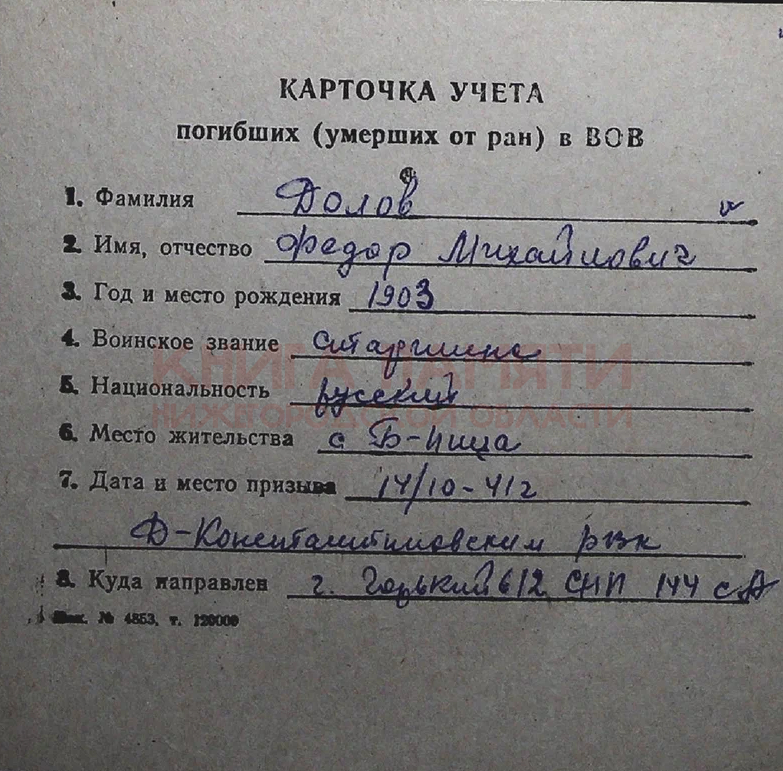 КАРТОЧКА УЧЕТА
погибших (умерших от ран) в ВОВ
1. Фамилия Долов
2. Имя, отчество Федор Михайлович
3. Год и место рождения 1903
4. Воинское звание старшина
КНИГА ПАМЯТИ
5. Национальность русский
НИЖЕГОРОДСКОЙ ОБЛАСТИ
6. Место жительства с Б-пица
7. Дата и место призыва 14/10-41г
Д-Константиновским рвк
8. Куда направлен г. Горький 612 СНП 144 сд
Зак. № 4853, т. 120000